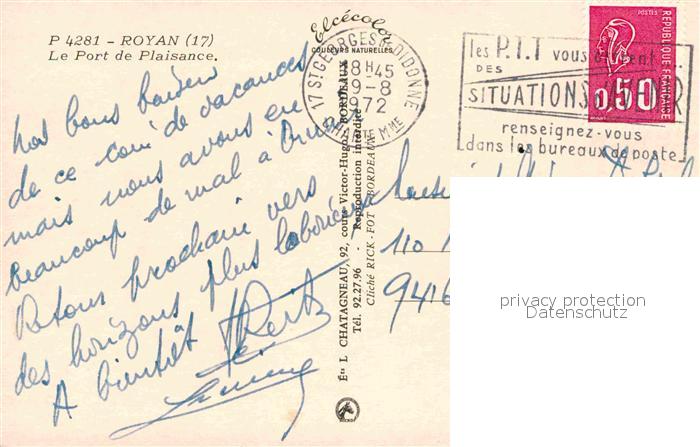 P 4281 - ROYAN (17)
Le Port de Plaisance.
Elcécolor
COULEURS NATURELLES
17 ST GEORGES DE DIDONNE
18H45
9-8
1972
CHARENTE MME
les P.T.T vous offrent
DES
SITUATIONS D'AVENIR
renseignez-vous
dans les bureaux de poste
REPUBLIQUE FRANÇAISE
0,50
Nos bons baisers
de ce coin de vacances
mais nous avons eu
beaucoup de mal à
Retour prochain vers
des horizons plus laborieux
A bientôt
Ets L. CHATAGNEAU, 92, cours Victor-Hugo, BORDEAUX
Tél. 92.27.96 - Reproduction interdite
Cliché RICK-FOT - BORDEAUX
110
9416
privacy protection
Datenschutz